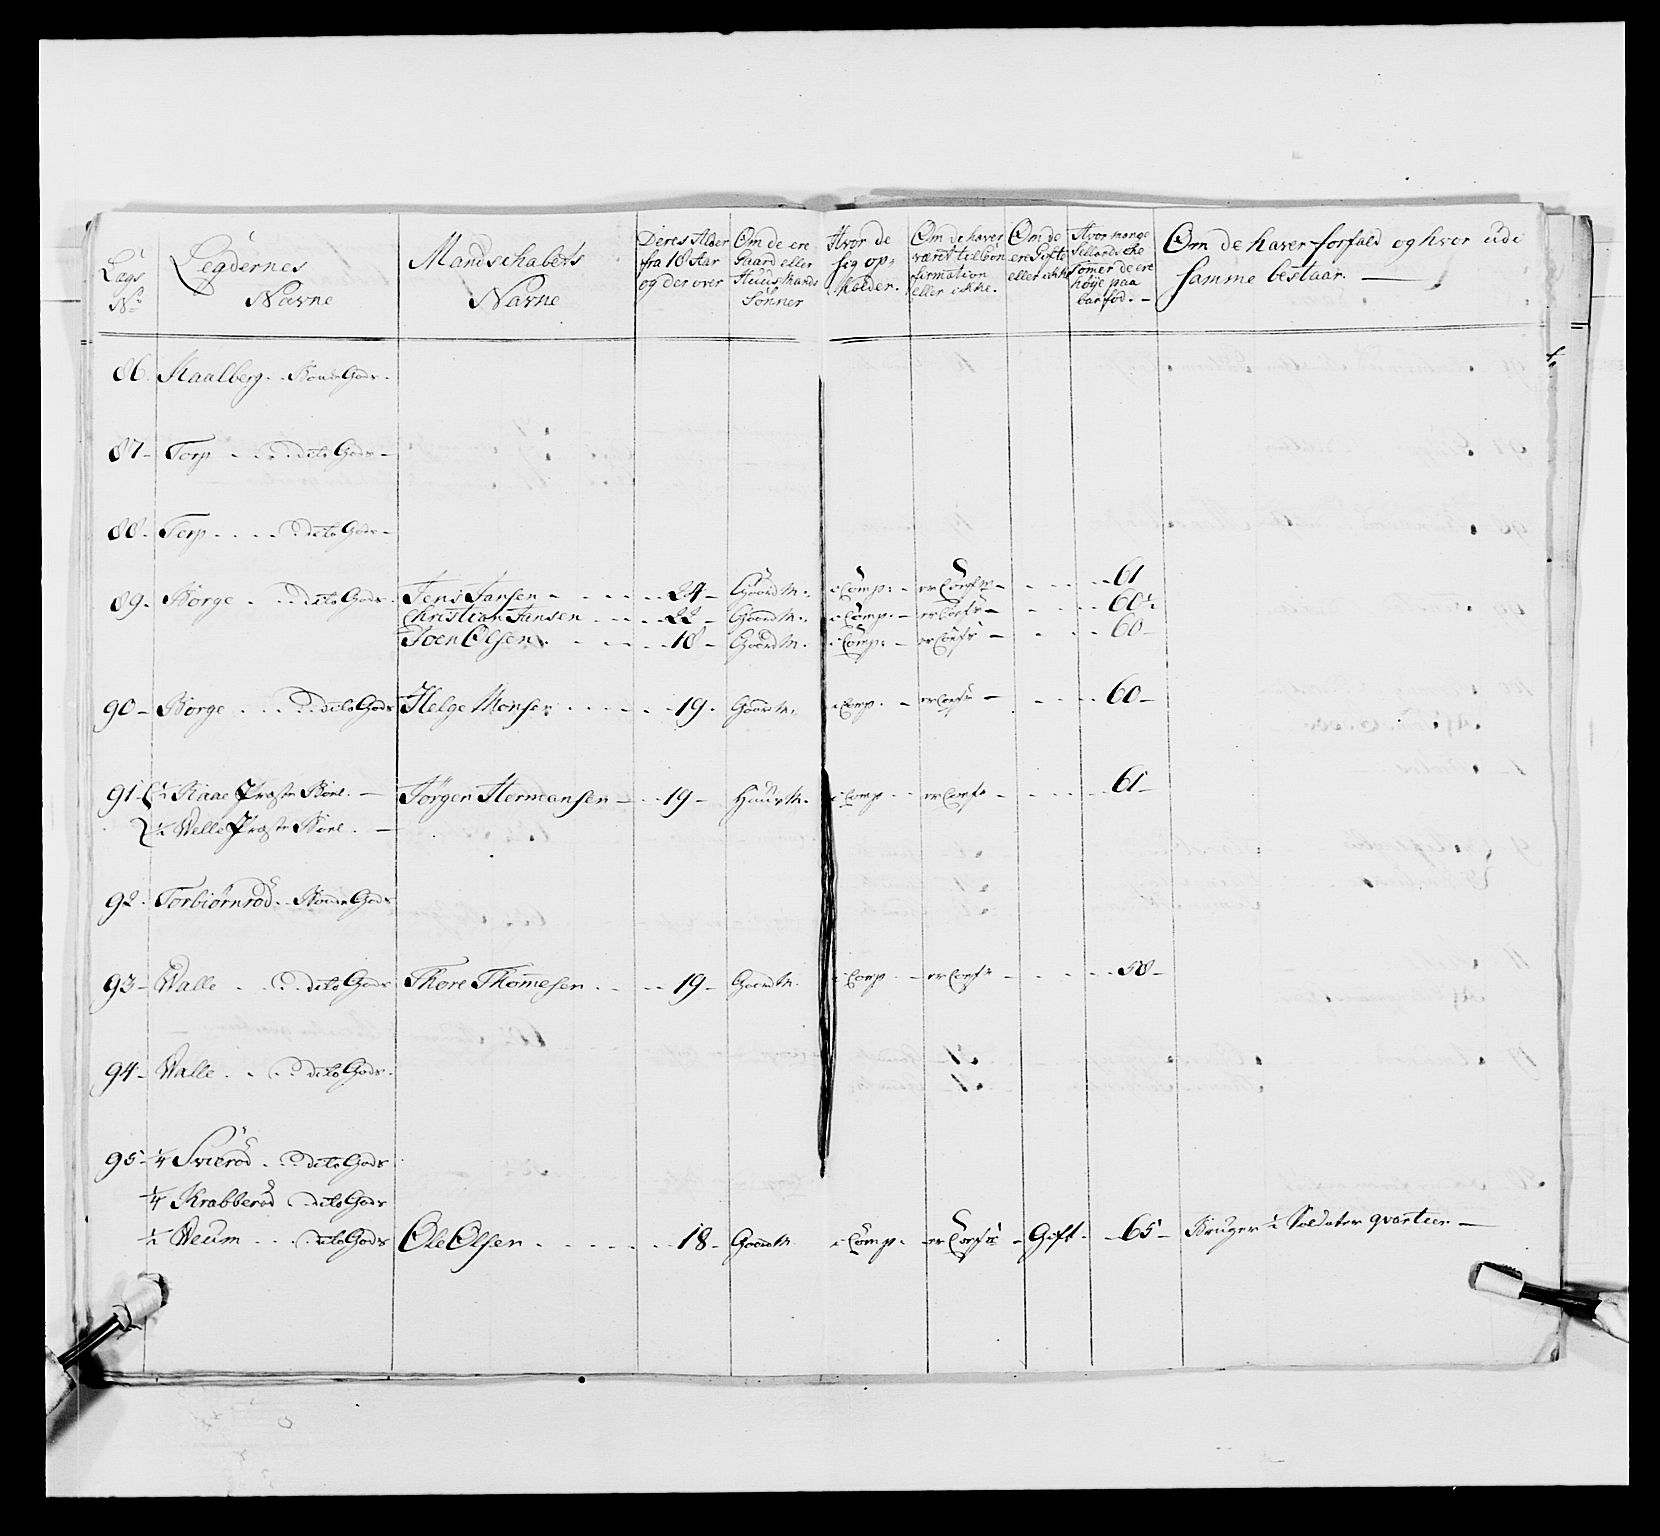 Lægs No
Legdernes Navne
Mandskabets Navne
Deres Alder fra 18 Aar og der over
Om de ere Gaard eller Huus Mands Sönner
Hvor de sig op- holder.
Om de haver været til Con firmation eller ikke.
Om de ere Gifte eller ikke
Hvor mange Tomer de ere höÿe paa bar fod. -
Om de haver forfald og hvor udi samme bestaar. -
86. Kaalberg. Bonde Gods.
87- Torp - - . dito Gods-
88. Torp . . . . dito Gods-
89. Borge . . dito Gods. Jens Jansen - - - - 24- Gaard M. i Comp. - er Conf - - - - 61
Christian Jansen . . . . 22- Gaard M. i Comp. - er Conf - - - 60½
Joen Olsen . - - - 18- Gaard M. i Comp. - er Conf - - - 60-
90- Borge . . . . dito Gods Helge Monsen . . . . 19. Gaard M. i Comp. - er Conf - - - 60-
91- ½ Raae Præste Bol. - Jörgen Hermansen - - 19- Huus M. i Comp - er Conf - - - - 61-
½ Welle Præste Bol. -
92. Torbiörnröd. Bonde Gods
93- Walle . . . dito Gods Thore Thomesen . . - 19- Gaard M. i Comp. - er Conf - - - - 58-
94- Walle . . . dito Gods.
95- ¼ Svieröd . . . dito Gods
¼ Krabberöd . dito Gods
½ Weum . . . dito Gods Ole Olsen . . . . . 18- Gaard M i Comp. - er Conf - Gift. - 65- Bruger ½ Soldater qvarteer -